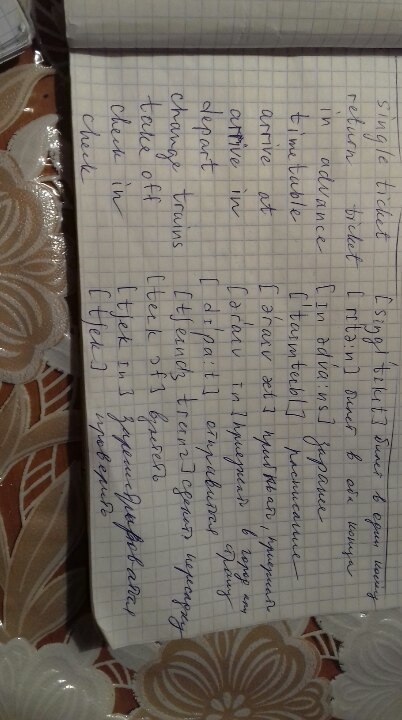 single ticket [singl 'tikit] билет в один конец
return ticket [ritən] билет в оба конца
in advance [in ədva:ns] заранее
timetable [taimteibl] расписание
arrive at [əraiv æt] прибывать, приезжать
arrive in [əraiv in] приезжать в город или страну
depart [dipa:t] отправится
change trains [tʃeindʒ treinz] сделать пересадку
take off [teik of] взлетать
check in [tʃek in] зарегистрироваться
check [tʃek] проверить